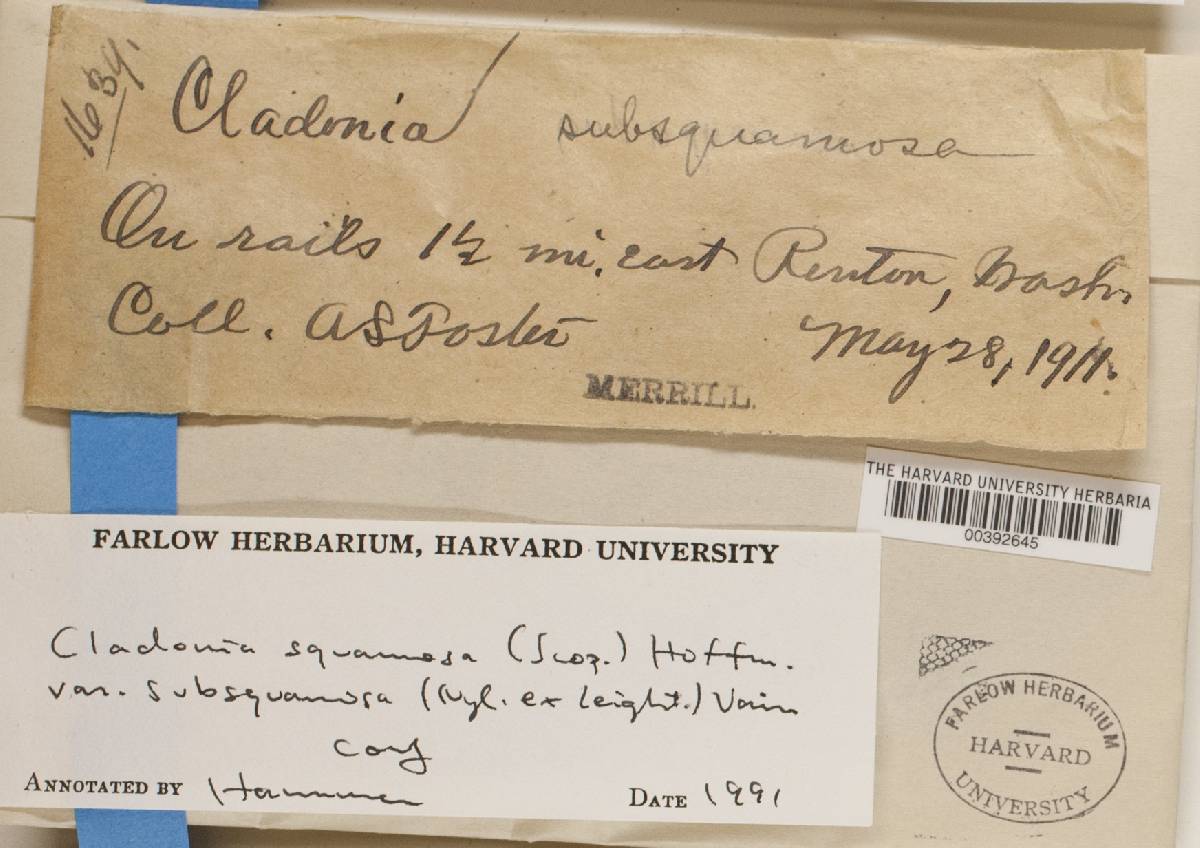 1639.
Cladonia subsquamosa
On rails 1½ mi. east Renton, Wash.
Coll. A S Foster May 28, 1911.
MERRILL.
THE HARVARD UNIVERSITY HERBARIA
00392645
FARLOW HERBARIUM, HARVARD UNIVERSITY
Cladonia squamosa (Scop.) Hoffm.
var. subsquamosa (Nyl. ex Leight.) Vain
conf
ANNOTATED BY Hammer DATE 1991
FARLOW HERBARIUM
HARVARD
UNIVERSITY